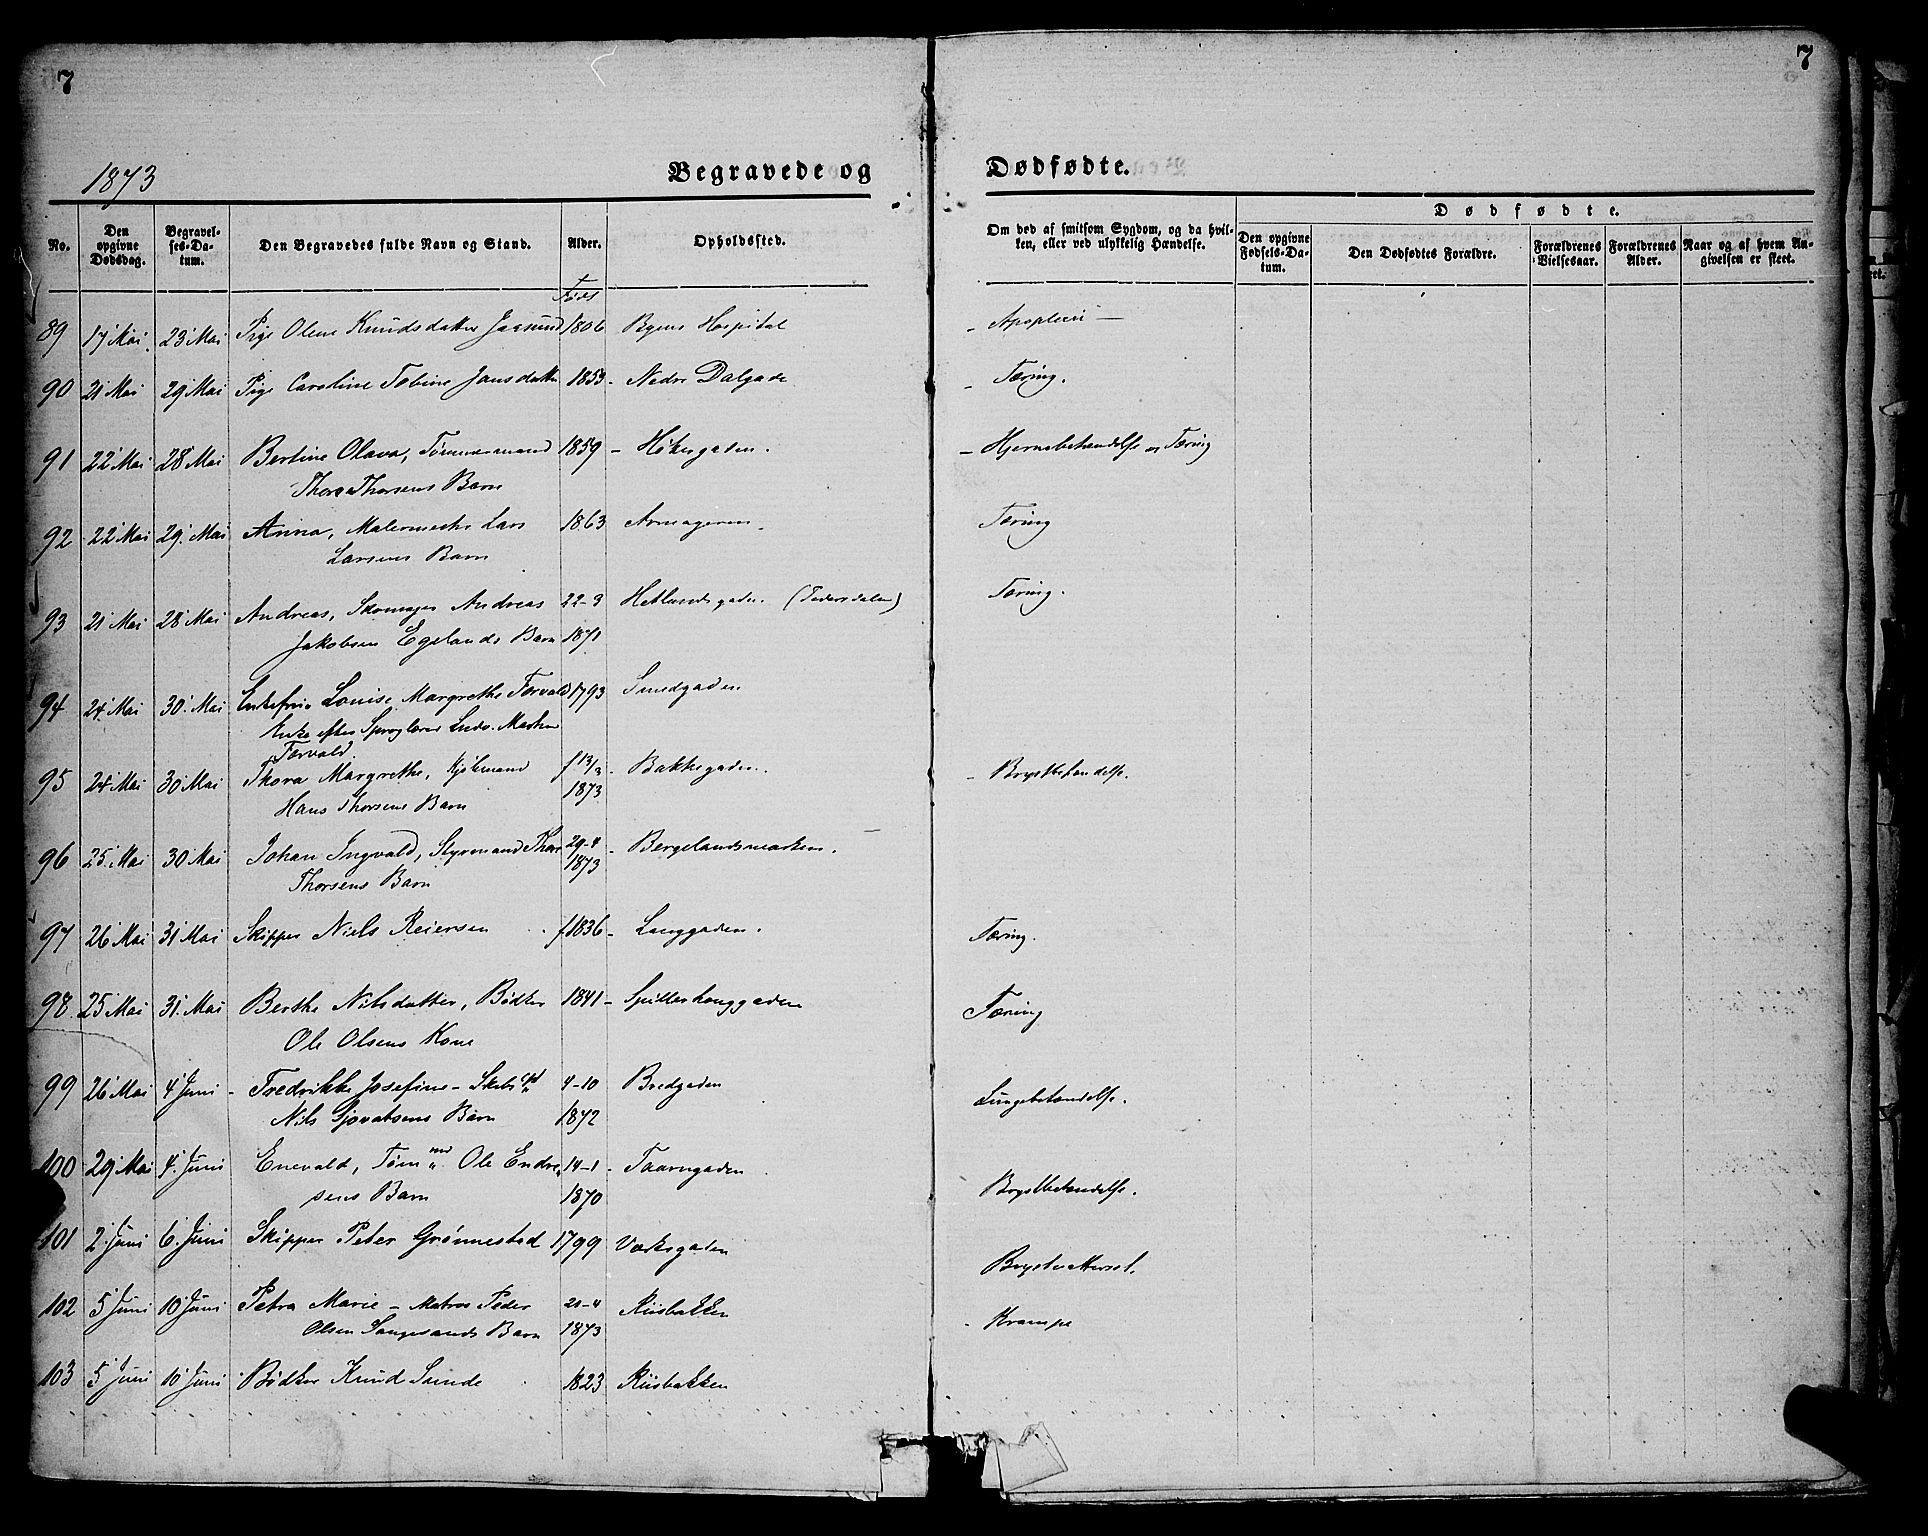 7
7
1873
Begravede og
Dødfødte.
No.
Den opgivne Dødsdag.
Begravel-ses-Da-tum.
Den Begravedes fulde Navn og Stand.
Alder.
Opholdssted.
Om død af smitsom Sygdom, og da hvil-
ken, eller ved ulykkelig Hændelse.
Dødfødte.
Den opgivne Fødsels-Da-tum.
Den Dødfødtes Forældre.
Forældrenes Vielsesaar.
Forældrenes Alder.
Naar og af hvem An-givelsen er skeet.
Føds
89 17 Mai 23 Mai Pige Olene Knudsdatter 1806 Byens Hospital - Apoplexi -
90 21 Mai 29 Mai Pige Caroline Tobine Jansdatter 1853 - Nedre Dalgade - Tæring.
91 22 Mai 28 Mai Bertine Olava, Tømmermand 1859 - Høkergaden. - Hjernebetændelse og Tæring
Thore Thorsens Barn
92 22 Mai 29. Mai Anna, Malermester Lars 1863 Armageren. Tæring
Larsens Barn
93 21 Mai 28 Mai Andreas, Skomager Andreas 22-9 Hetlandsgaden. Tæring.
Jakobsen Egelands Barn 1871
94 24 Mai 30. Mai Enkefru Louise Margrethe Torvald 1793 Smedgaden
Enke efter Sproglærer
Torvald
95 24 Mai 30 Mai Thora Margrethe, Kjøbmand f 13/3 - Bakkegaden. - Brystbetændelse.
Hans Thorsens Barn 1873
96 25. Mai 30 Mai Johan Ingvald, Styrmand Thore 29-4 - Bergelandsmarken.
Thorsens Barn 1873
97 26 Mai 31 Mai Skipper Niels Reiersen f 1836 - Langgaden. Tæring.
98. 25 Mai 31. Mai Berthe Nilsdatter, Bødker 1841 - Spilderhauggaden Tæring
Ole Olsens Kone
99 26 Mai 4 Juni - Fredrikke Josefine - 4-10 Bredgaden Lungebetændelse.
Nils Barn 1872
100 29 Mai 4. Juni Enevald, Tømmd Ole Endre 14-1 - Taarngaden Brystbetændelse.
sens Barn 1870
101 2. Juni 6. Juni Skipper Peter Grønnestad 1799 Værksgaden
102 5 Juni 10 Juni Petra Marie - Matros Peder 21-4 Riisbakken - Krampe
Olsen Barn 1873
103 5 Juni 10 Juni Bødker Knud Sunde 1823 Riisbakken